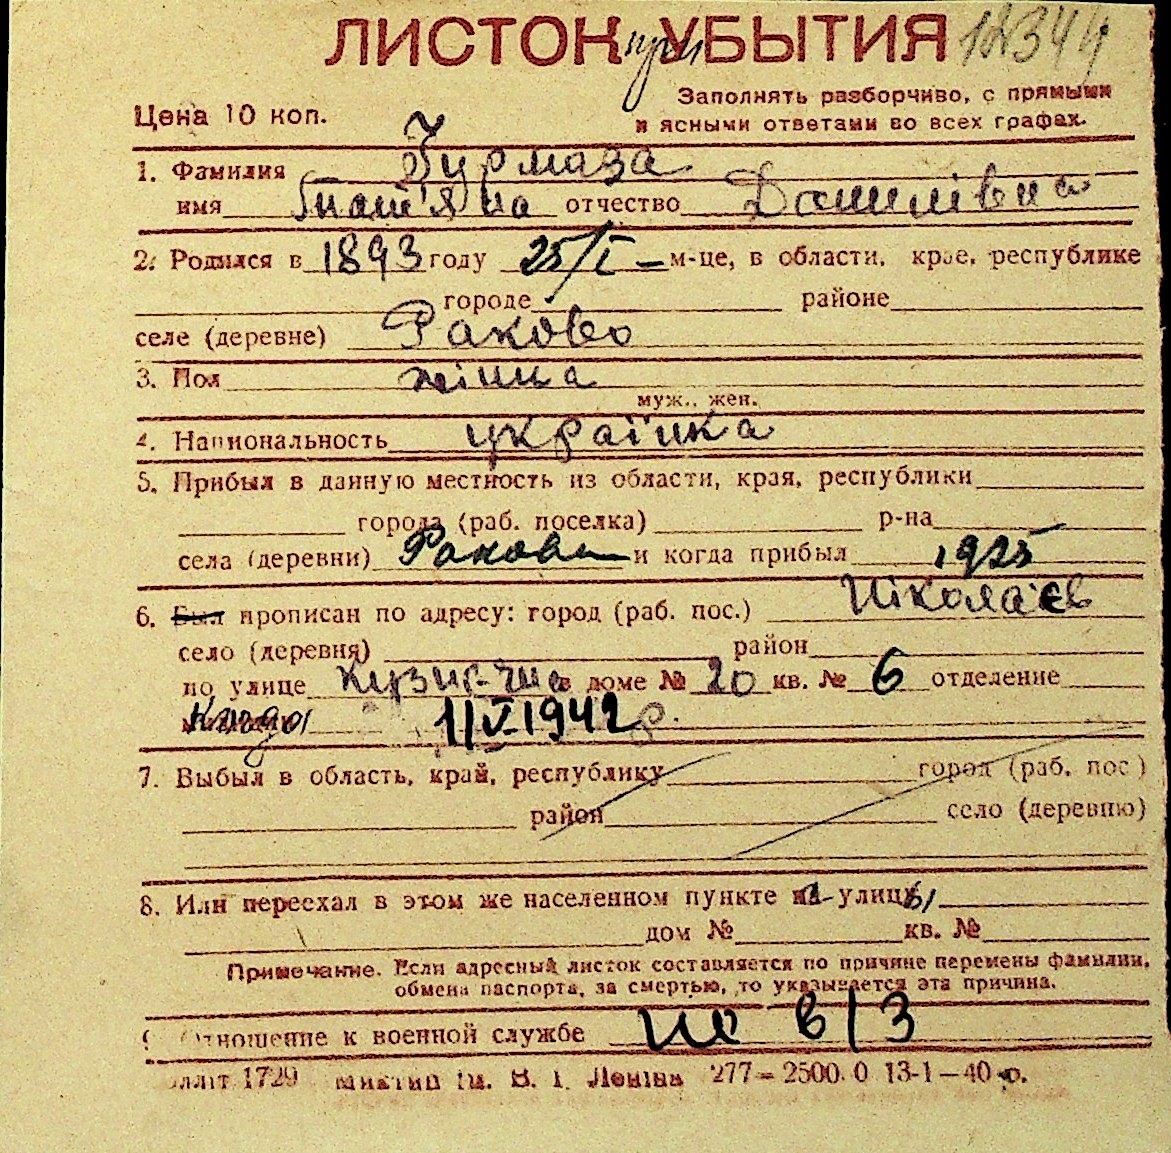 ЛИСТОК при УБЫТИЯ 12344
Заполнять разборчиво, с прямыми
Цена 10 коп. и ясными ответами во всех графах.
1. Фамилия Гурмаза
имя Тат'яна отчество Данилівна
2. Родился в 1893 году 25/I – м-це, в области, крае, республике
городе районе
селе (деревне) Раково
3. Пол жінка
муж., жен.
4. Национальность українка
5. Прибыл в данную местность из области, края, республики
города (раб. поселка) р-на
села (деревни) Раково и когда прибыл 1925
6. Был прописан по адресу: город (раб. пос.) Ніколаєв
село (деревня) район
по улице в доме № 20 кв. № 6 отделение
Когда 11 V 1942 р.
7. Выбыл в область, край, республику город (раб. пос.)
район село (деревню)
8. Или переехал в этом же населенном пункте из улицы
дом № кв. №
Примечание. Если адресный листок составляется по причине перемены фамилии,
обмена паспорта, за смертью, то указывается эта причина.
9. Отношение к военной службе не в/з
1729 В. І. Леніна 277–2500.0 13-1–40 р.